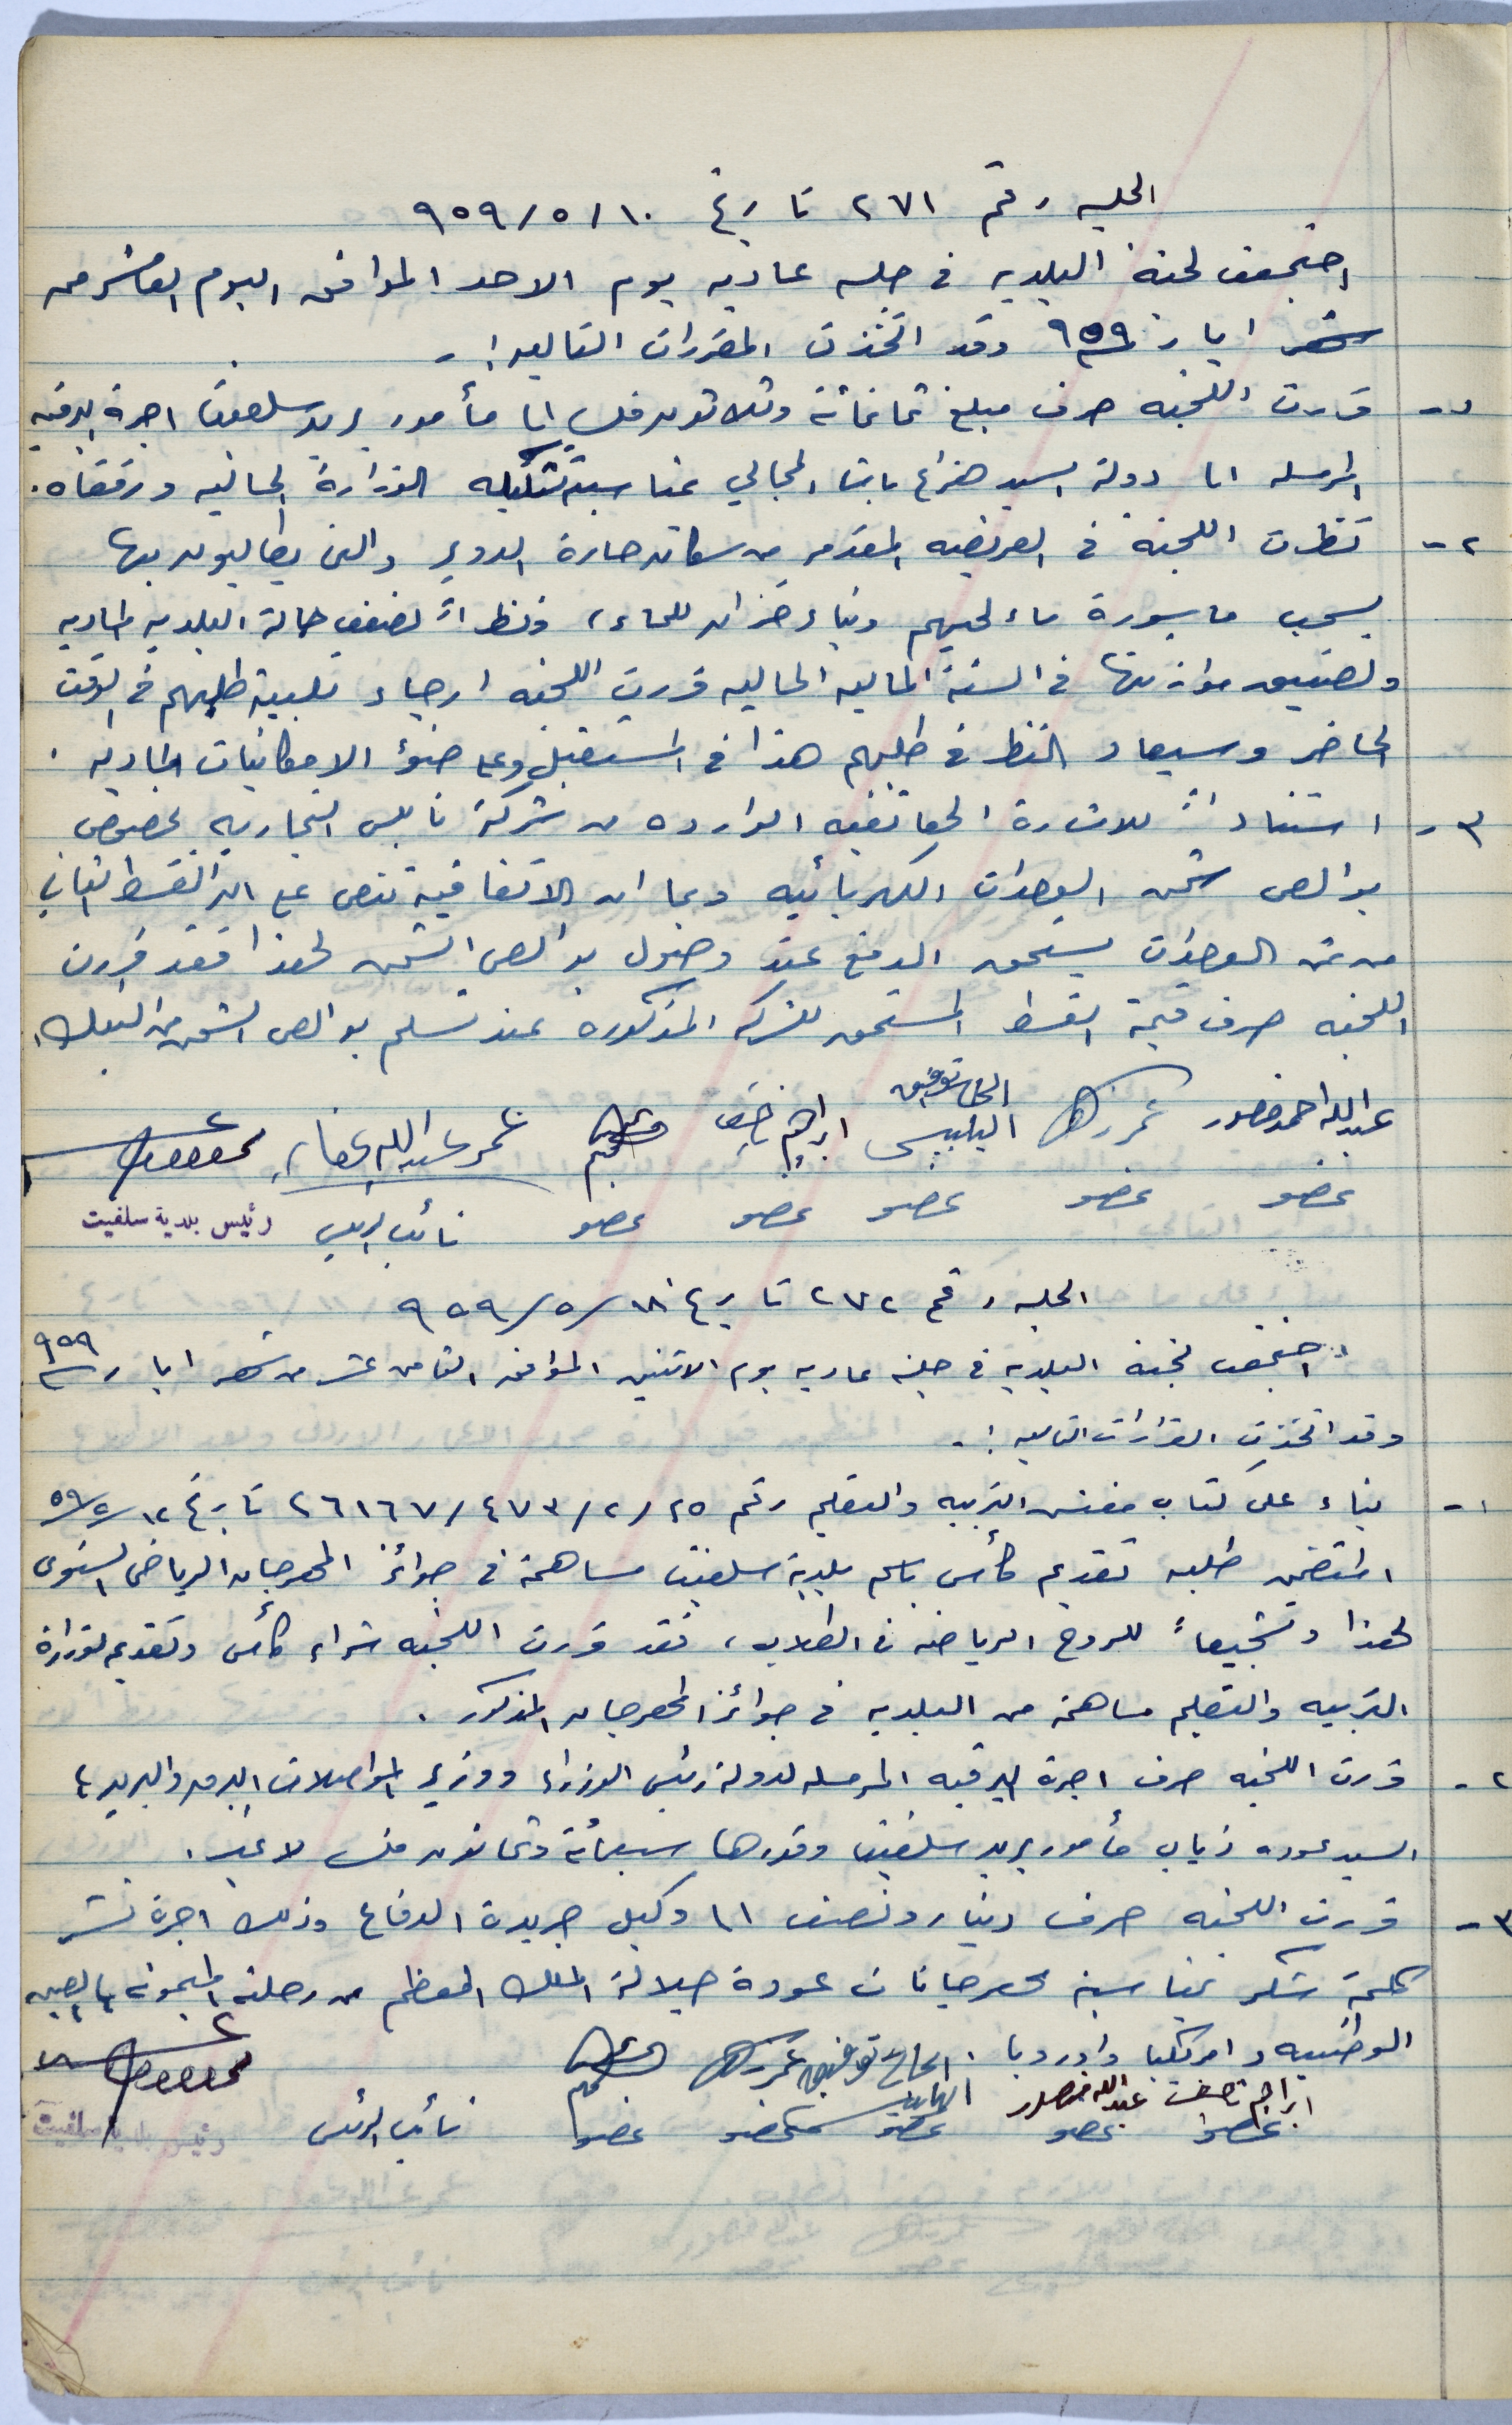 الجلسه رقم ٢٧١ تاريخ ١٠/٥/٩٥٩
اجتمعت لجنة البلديه في جلسه عاديه يوم الاحد الموافق اليوم العاشر من
شهر ايار ٩٥٩ وقد اتخذت المقررات التاليه :-
١- قررت اللجنه صرف مبلغ ثمانمائة وثلاثون فلس الى مأمور بريد سلفيت اجرة البرقيه
المرسله الى دولة السيد هزاع باشا المجالي بمناسبة تشكيله الوزارة الحاليه ورفقاه.
٢- نظرت اللجنة في العريضه المقدمه من سكان حارة الدوير والتي يطالبون بها
بسحب ماسورة ماء لحيهم وبناء خزان للماء، ونظراً لضعف حالة البلدية الماديه
ولضيق موازنتها في السنة الماليه الحاليه قررت اللجنه ارجاء تلبية طلبهم في الوقت
الحاضر وسيعاد النظر في طلبهم هذا في المستقبل وعلى ضوء الامكانيات الماديه .
٣- استناداً للاشارة الهاتفيه الوارده من شركة نابلس التجاريه بخصوص
بوالص شحن الوحدات الكهربائيه وبما ان الاتفاقية تنص على ان القسط الثاني
من ثمن الوحدات يستحق الدفع عند وصول بوالص الشحن لهذا فقد قررت
اللجنه صرف قيمة القسط المستحق للشركه المذكوره عند تسلم بوالص الشحن من البنك.
عبدالله احمد منصور عمر الحاج توفيق البلبيسي ابراهيم ناصف عمر عبدالله عفانه
عضو عضو عضو عضو عضو نائب الرئيس رئيس بلدية سلفيت
الجلسه رقم ٢٧٢ تاريخ ١٨/٥/٩٥٩
اجتمعت لجنة البلديه في جلسة عاديه يوم الاثنين الموافق الثامن عشر من شهر ايار ٩٥٩
وقد اتخذت القرارات التاليه :-
١- بناء على كتاب مفتش التربيه والتعليم رقم ٢٥/٢/٤٧٣/٢٦١٦٧ تاريخ ١٢/٥/٥٩
المتضمن طلبه تقديم كأس باسم بلدية سلفيت مساهمة في جوائز المهرجان الرياضي السنوي
لهذا وتشجيعاً للروح الرياضه في الطلاب، فقد قررت اللجنه شراء كأس وتقديم لوزارة
التربيه والتعليم مساهمة من البلديه في جوائز المهرجان المذكور .
٢- قررت اللجنه صرف اجرة البرقيه المرسله لدولة رئيس الوزراء ووزير المواصلات البرق والبريد،
السيد عوده ذياب مأمور بريد سلفيت وقدرها سبعمائة وثمانون فلس لا غير.
٣- قررت اللجنه صرف دينار ونصف الى وكيل جريدة الدفاع وذلك اجرة نشر
كلمة شكر بمناسبة مهرجانات عودة جلالة الملك المعظم من رحلته الميمونه بالصين
الوطنيه وامريكيا واوروبا .
ابراهيم ناصف عبدالله منصور الحاج توفيق البلبيسي عمر
عضو عضو عضو عضو عضو نائب الرئيس رئيس بلدية سلفيت